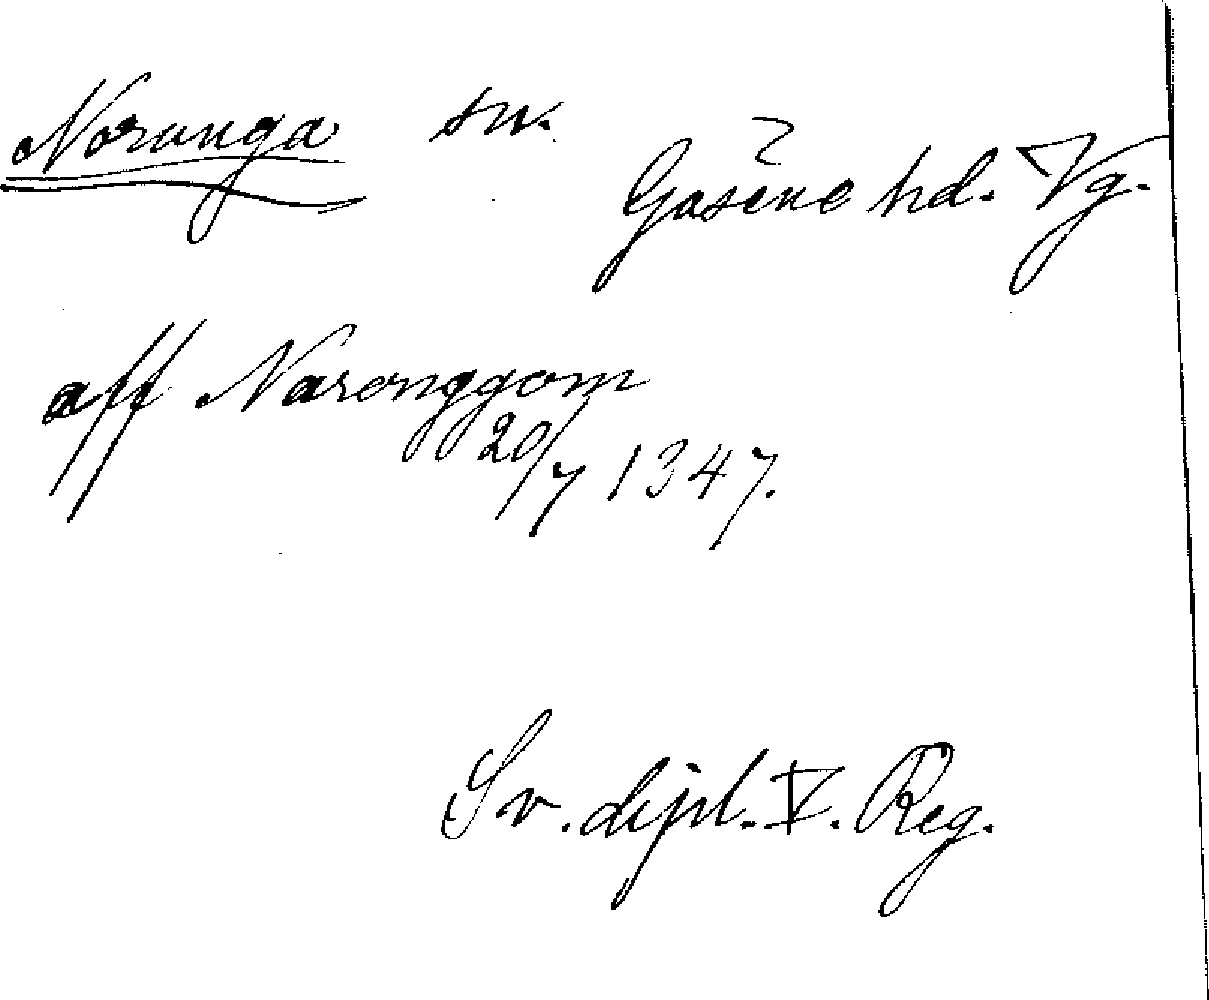 Norunga sn.
Gäsene hd. Vg.
aff Naronggom
20/7 1347.
Sv. dipl. V. Reg.